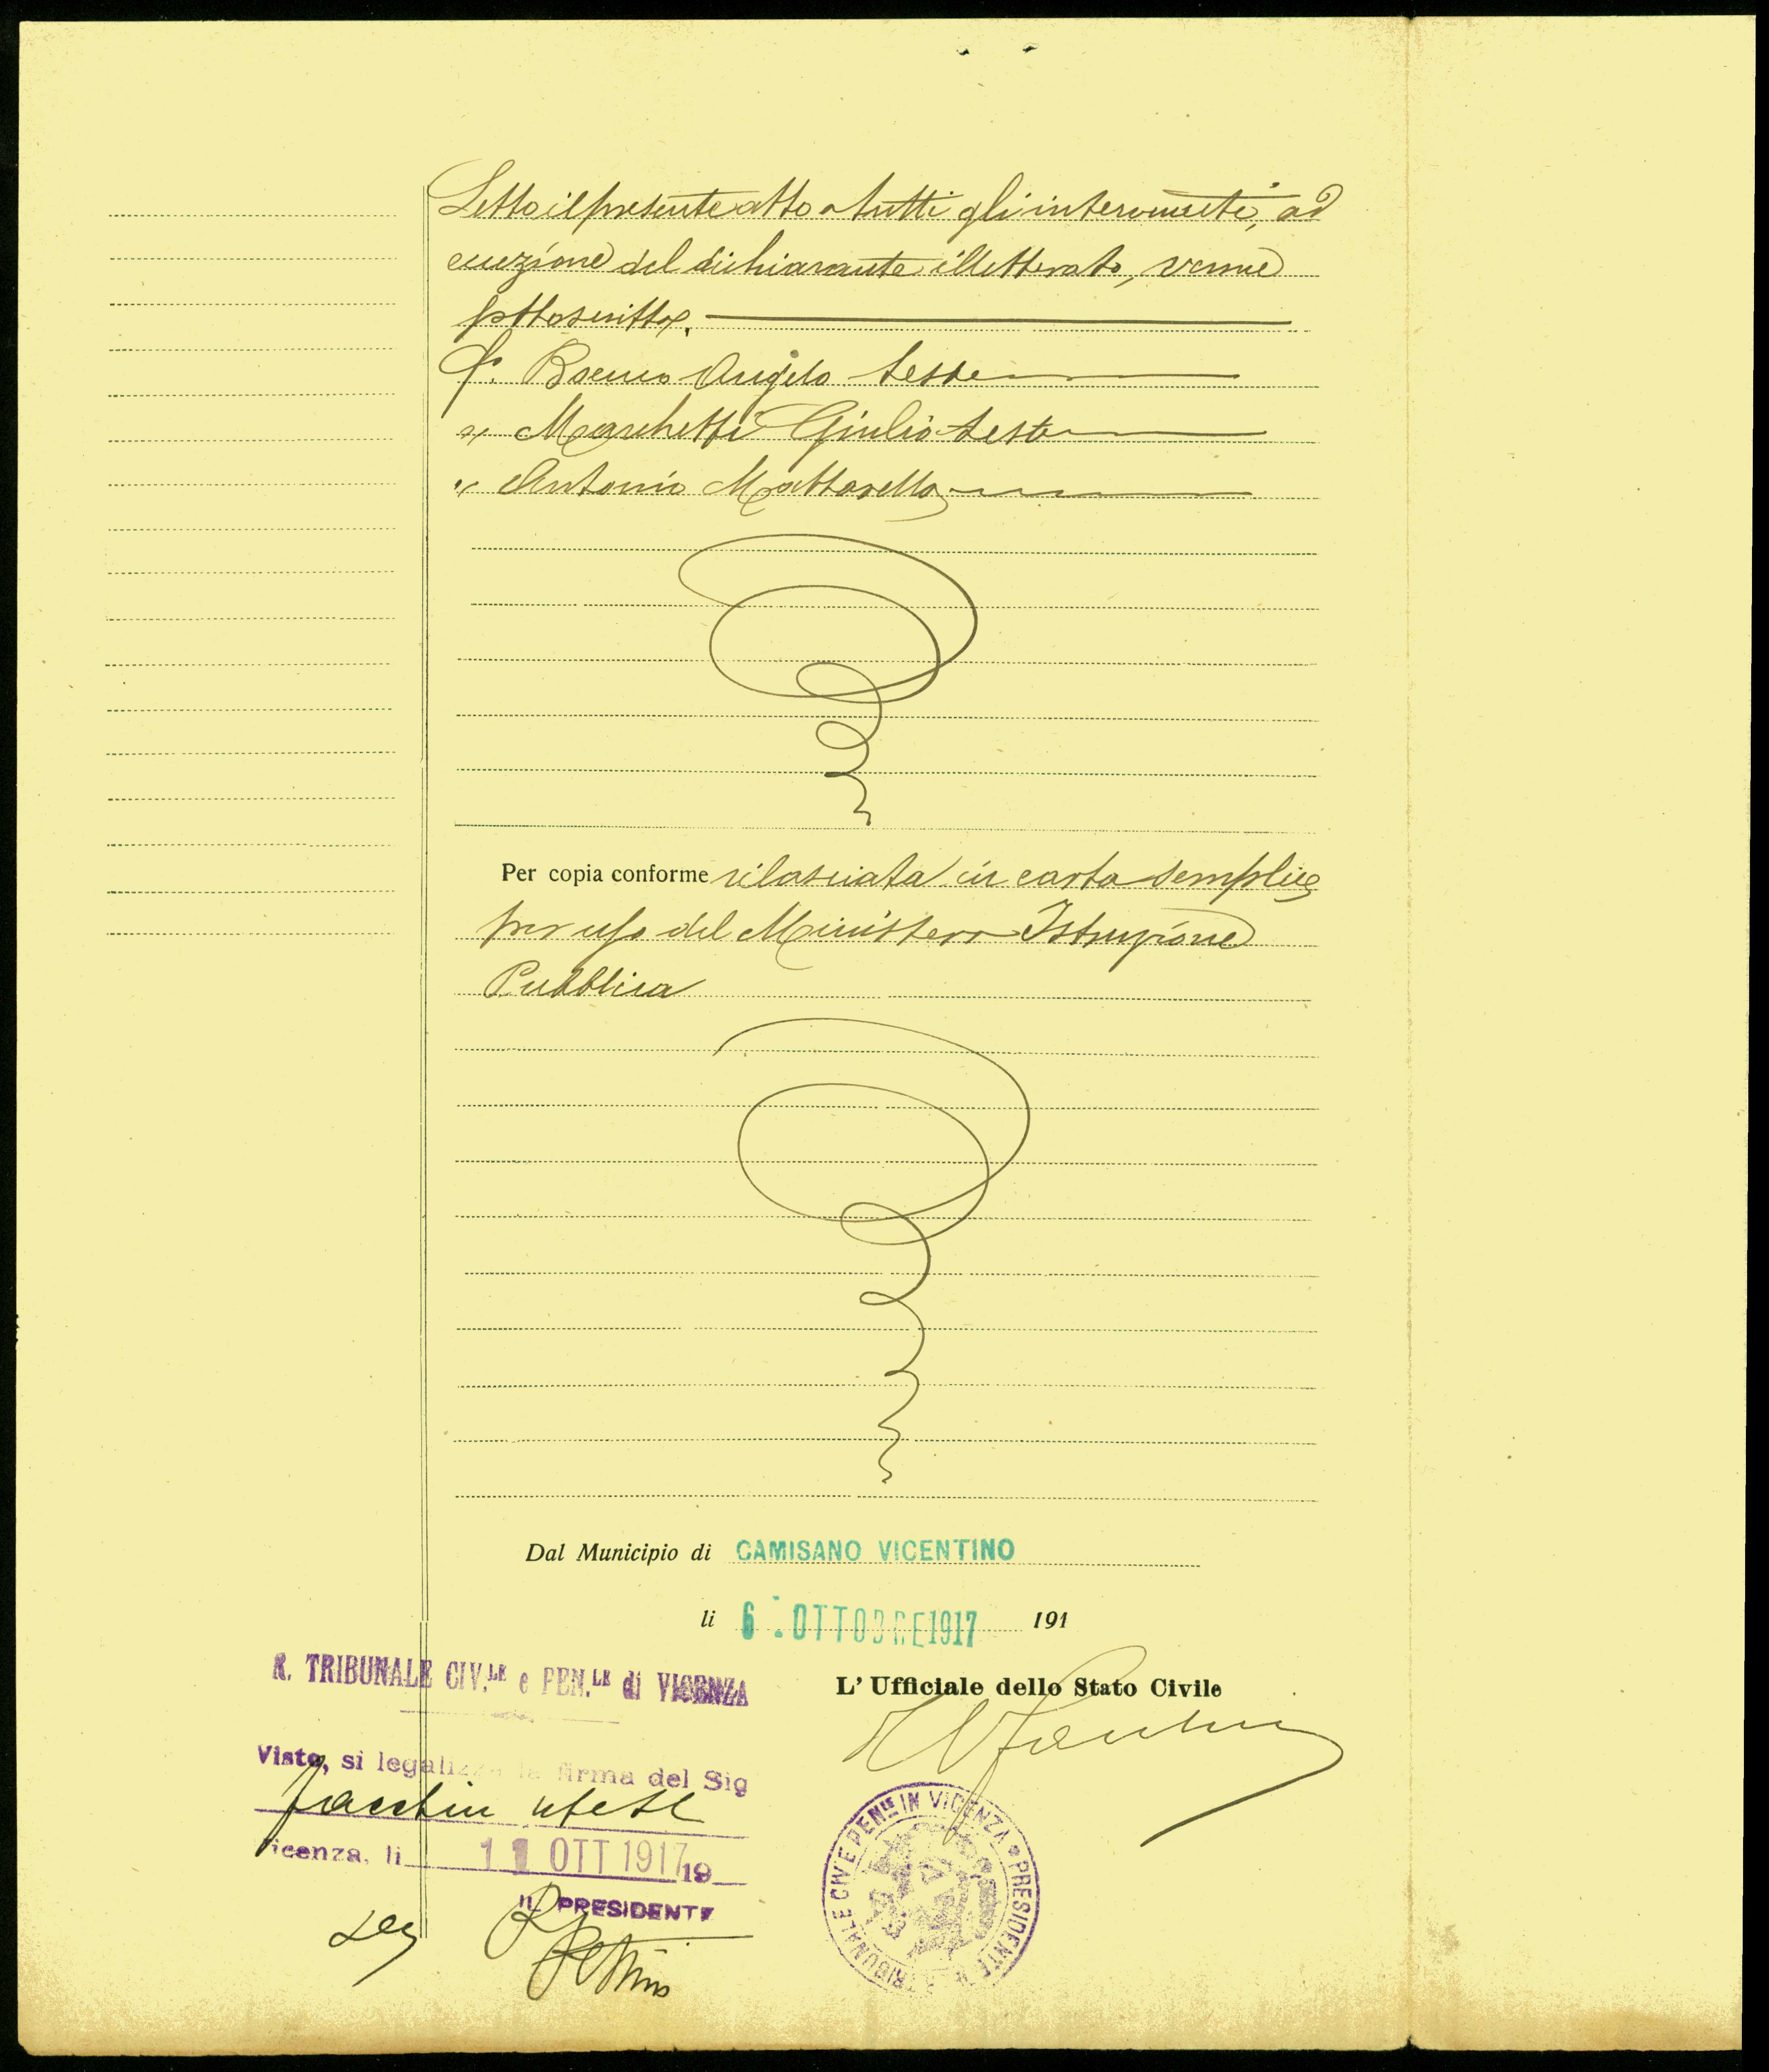 Letto il presente atto a tutti gli intervenuti, ad
eccezione del dichiarante illetterato, venne
sottoscritto.
F. Angelo teste
" Marchetti Giulio teste
" Antonio Mattarello
Per copia conforme rilasciata in carta semplice
per uso del Ministero Istruzione
Pubblica
Dal Municipio di CAMISANO VICENTINO
li 6 OTTOBRE 1917 191
L' Ufficiale dello Stato Civile
R. TRIBUNALE CIV.LE e PEN.LE di VICENZA
Visto, si legalizza la firma del Sig
Vicenza, li 11 OTT 1917 19
IL PRESIDENTE
TRIBUNALE CIV E PENLE IN VICENZA * PRESIDENTE